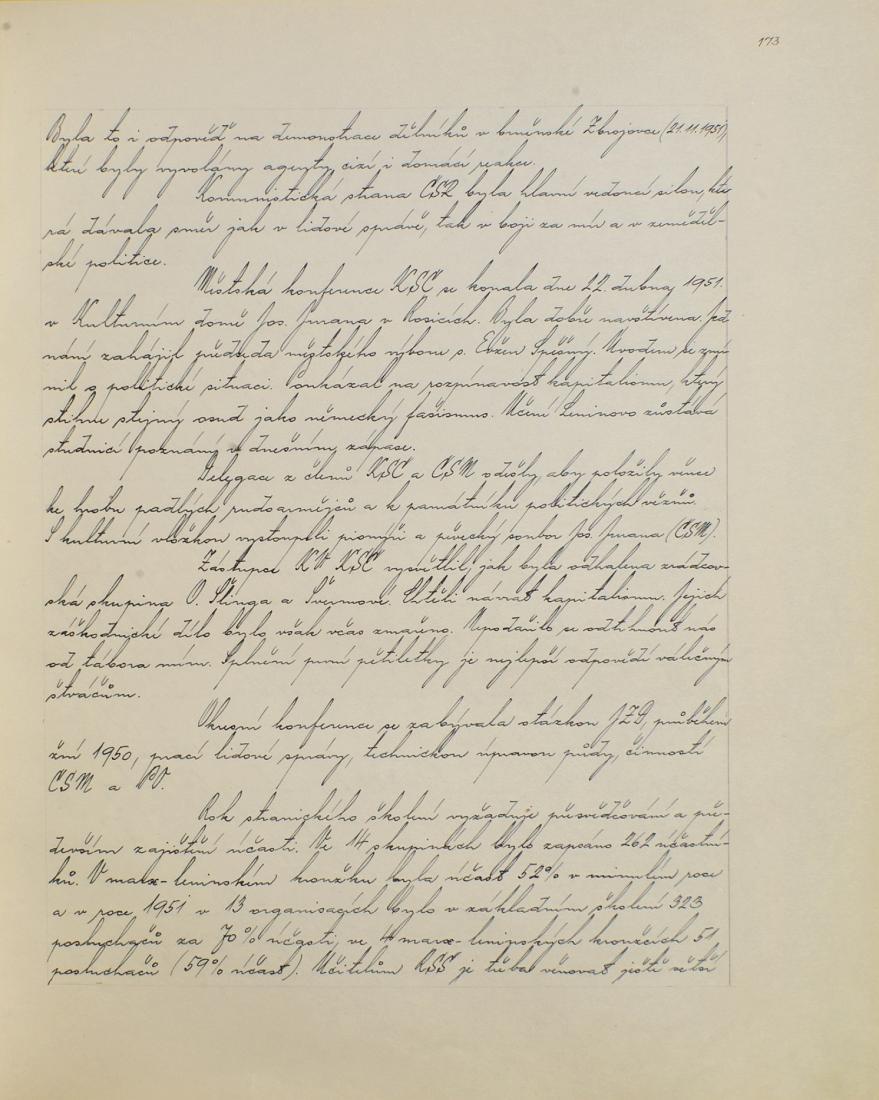 173
Byla to i odpověď na demonstrace dělníků v brněnské Zbrojovce (21.11.1951),
které byly vyvolány agenty, cizí i domácí reakce.
Komunistická strana ČSR byla hlavní vedoucí silou, kte
rá dávala směr jak v lidové správě, tak v boji za mír a v zeměděl-
ské politice.
Městská konference KSČ se konala dne 22. dubna 1951.
v Kulturním domě Jos. Jurana v Rosicích. Byla dobře navštívena. Jed
nání zahájil předseda městského výboru s. Evžen Spěšný. Úvodem se zmí
nil o politické situaci. Poukázal na rozpínavost kapitalismu, který
stihne stejný osud jako německý fašismus. Učení Leninovo zůstává
studnicí poznání v dnešním zápase.
Delegace z členů KSČ a ČSM odešly, aby položily věnce
ke hrobu padlých rudoarmějců a k památníku politických vězňů.
S kulturní vložkou vystoupili pionýři a pěvecký soubor Jos. Jurana (ČSM).
Zástupce KV KSČ vysvětlil, jak byla odhalena zrádcov-
ská skupina O. Šlinga a Švermové. Chtěli návrat kapitalismu. Jejich
záškodnické dílo bylo však včas zmařeno. Nepodařilo se odtrhnout nás
od tábora míru. Splnění první pětiletky je nejlepší odpovědí válečným
štváčům.
Okresní konference se zabývala otázkou JZD, průběhem
žní 1950, prací lidové správy, technickou úpravou půdy, činností
ČSM a NV.
Rok stranického školení vyžaduje přesvědčování a pře-
devším zajištění účasti. Ve 14 skupinách bylo zapsáno 262 účastní-
ků. V marx-leninském kroužku byla účast 52% v minulém roce
a v roce 1951 v 13 organisacích bylo v základním školení 323
posluchačů za 70% účasti, ve 4 marx-leninských kroužcích 51
posluchačů (59% účast). Učitelům RSŠ je třeba věnovat ještě větší